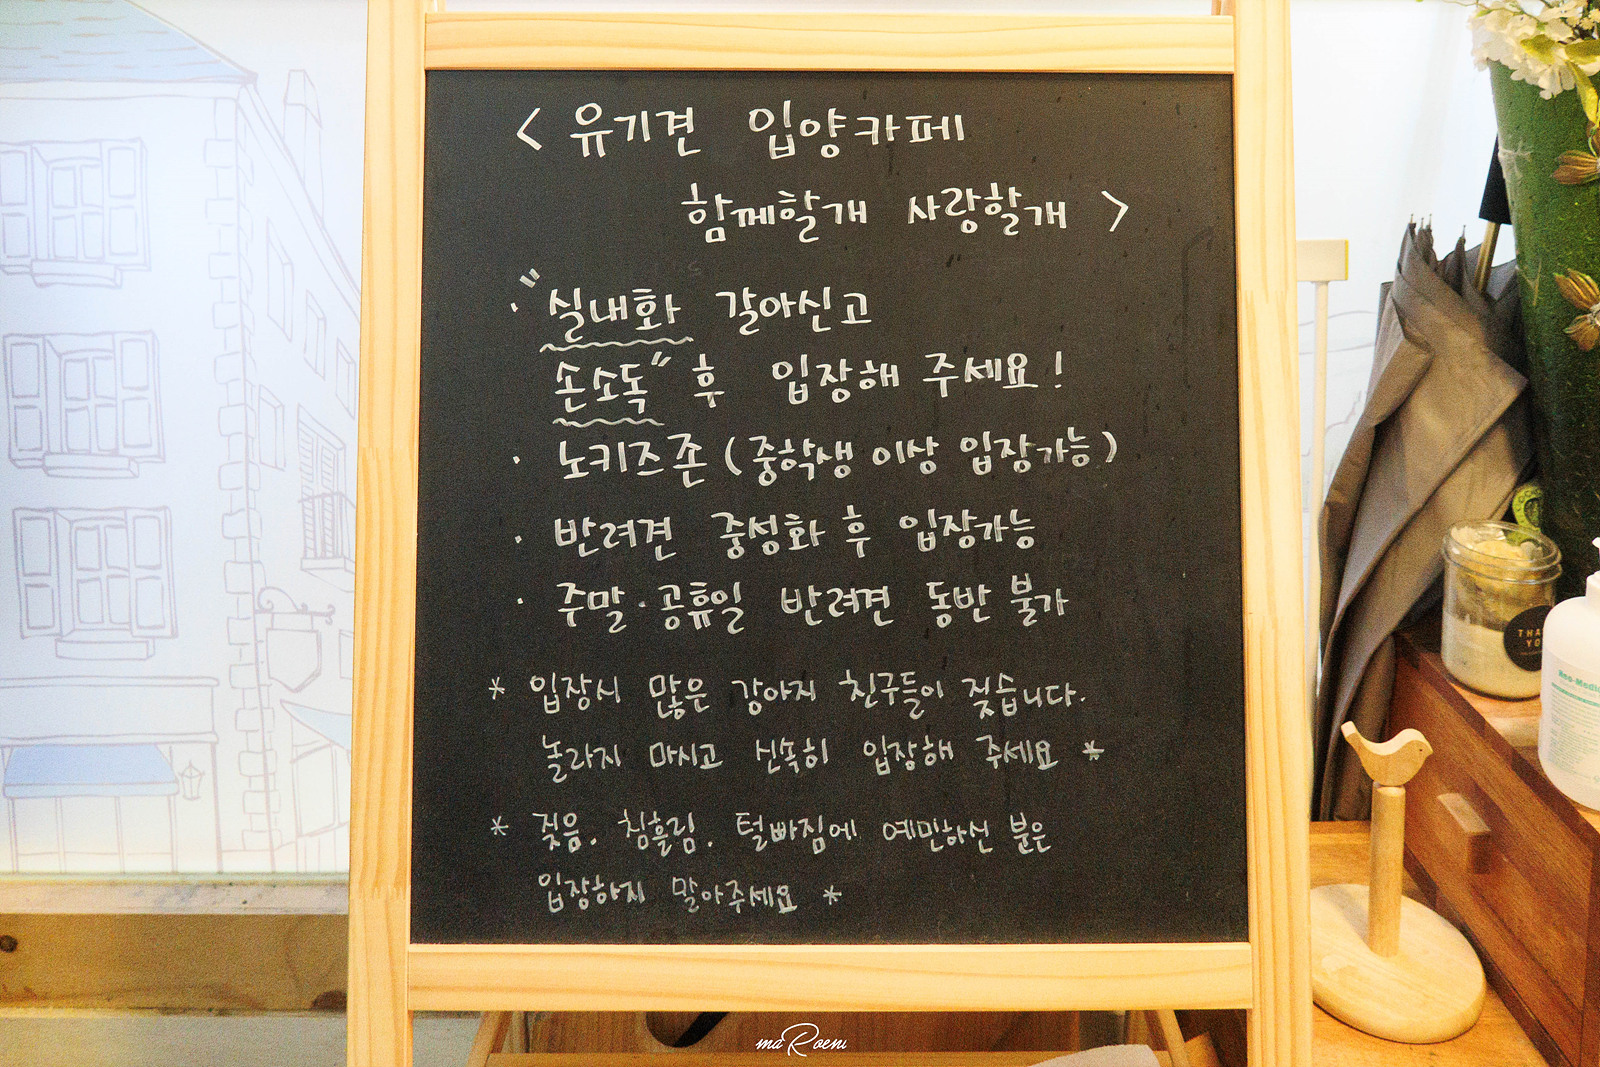 < 유기견 입양카페
함께할개 사랑할개 >
· "실내화 갈아신고
손소독" 후 입장해 주세요!
· 노키즈존 (중학생 이상 입장가능)
· 반려견 중성화 후 입장가능
· 주말·공휴일 반려견 동반 불가
* 입장시 많은 강아지 친구들이 짖습니다.
놀라지 마시고 신속히 입장해 주세요 *
* 짖음. 침흘림. 털빠짐에 예민하신 분은
입장하지 말아주세요 *
THA
YO
maRoeni